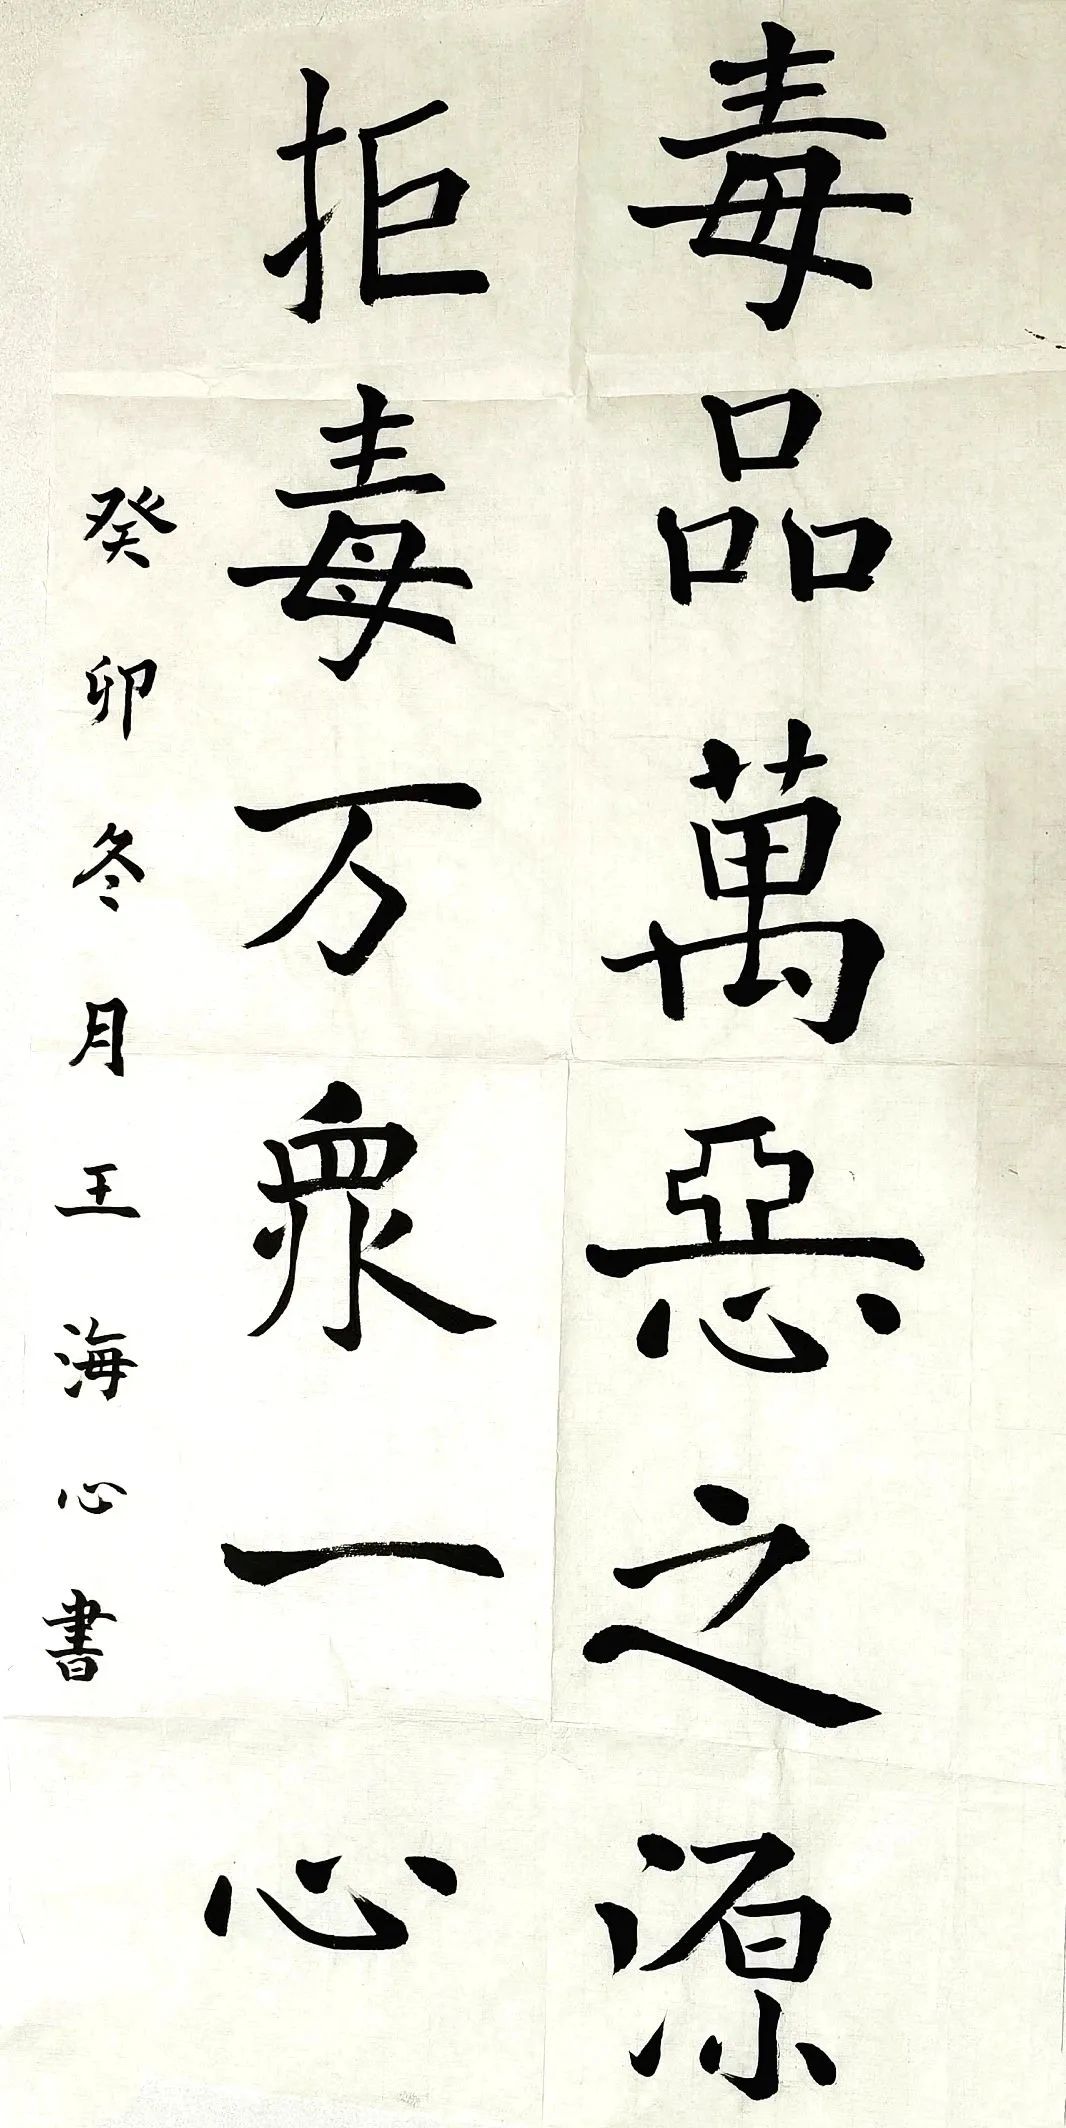 毒品萬惡之源
拒毒万眾一心
癸卯冬月王海心書